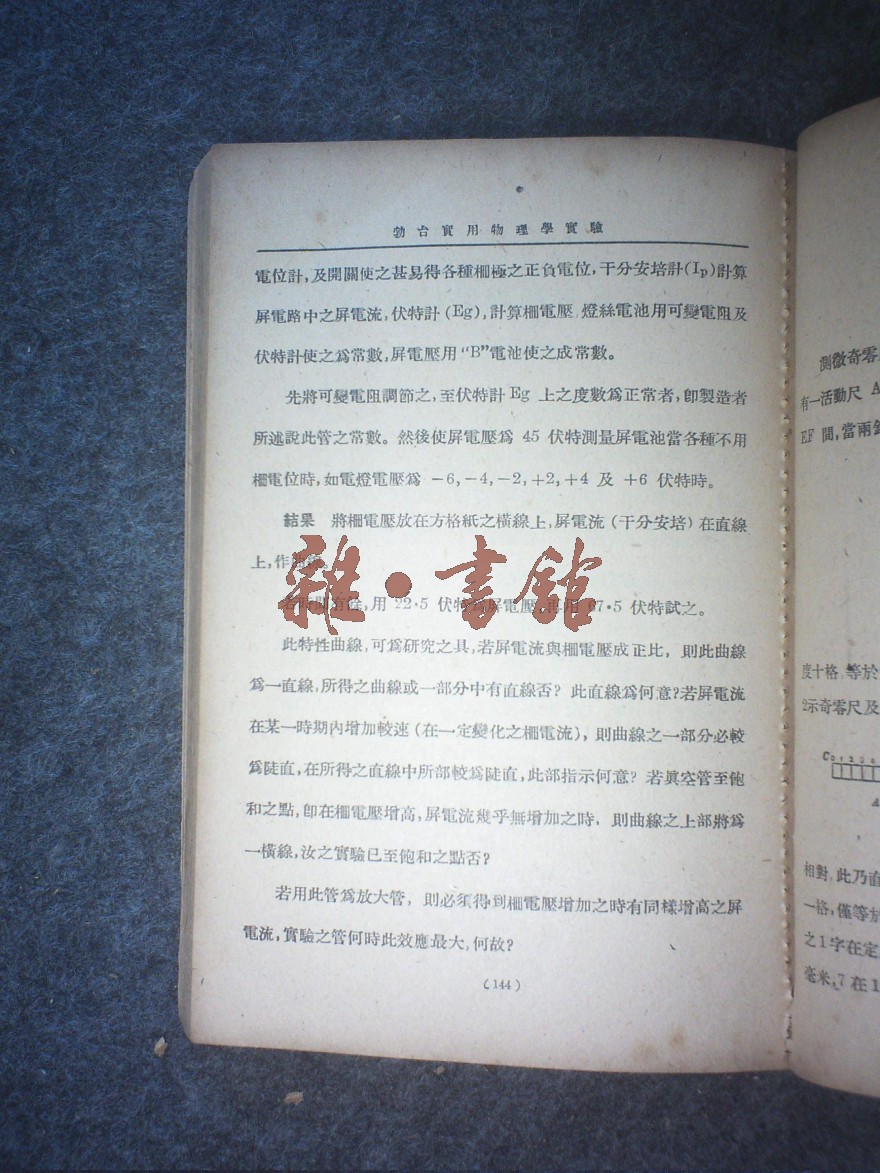 勃台實用物理學實驗
電位計,及開關使之甚易得各種柵極之正負電位,干分安培計(Ip)計算
屏電路中之屏電流,伏特計(Eg),計算柵電壓,燈絲電池用可變電阻及
伏特計使之爲常數,屏電壓用“B”電池使之成常數。
先將可變電阻調節之,至伏特計 Eg 上之度數爲正常者,卽製造者
所述說此管之常數。然後使屏電壓爲 45 伏特測量屏電池當各種不用
柵電位時,如電燈電壓爲 -6,-4,-2,+2,+4 及 +6 伏特時。
結果 將柵電壓放在方格紙之橫線上,屏電流(干分安培)在直線
上,作曲線。
若時間有餘,用 22·5 伏特爲屏電壓,再用 67·5 伏特試之。
此特性曲線,可爲研究之具,若屏電流與柵電壓成正比,則此曲線
爲一直線,所得之曲線或一部分中有直線否?此直線爲何意?若屏電流
在某一時期內增加較速(在一定變化之柵電流),則曲線之一部分必較
爲陡直,在所得之直線中所部較爲陡直,此部指示何意?若眞空管至飽
和之點,卽在柵電壓增高,屏電流幾乎無增加之時,則曲線之上部將爲
一橫線,汝之實驗已至飽和之點否?
若用此管爲放大管,則必須得到柵電壓增加之時有同樣增高之屏
電流,實驗之管何時此效應最大,何故?
(144)
雜·書館
測微奇零
有一活動尺 A
EF 間,當兩
度十格,等於
示奇零尺及
相對,此乃直
一格,僅等於
之1字在定
毫米,7 在1